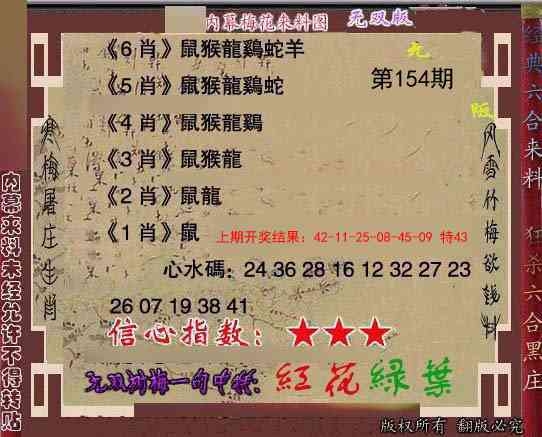 内幕梅花来料图 无双版
《6 肖》鼠猴龍鷄蛇羊
《5 肖》鼠猴龍鷄蛇
第154期
《4 肖》鼠猴龍鷄
《3 肖》鼠猴龍
《2 肖》鼠龍
《1 肖》鼠
上期开奖结果：42-11-25-08-45-09 特43
心水碼：24 36 28 16 12 32 27 23
26 07 19 38 41
信心指数：★★★
紅花綠葉
寒梅屠庄生肖
内幕来料未经允许不得转贴
风雪竹梅欲钱料
经典六合来料 狂杀六合黑庄
版权所有 翻版必究